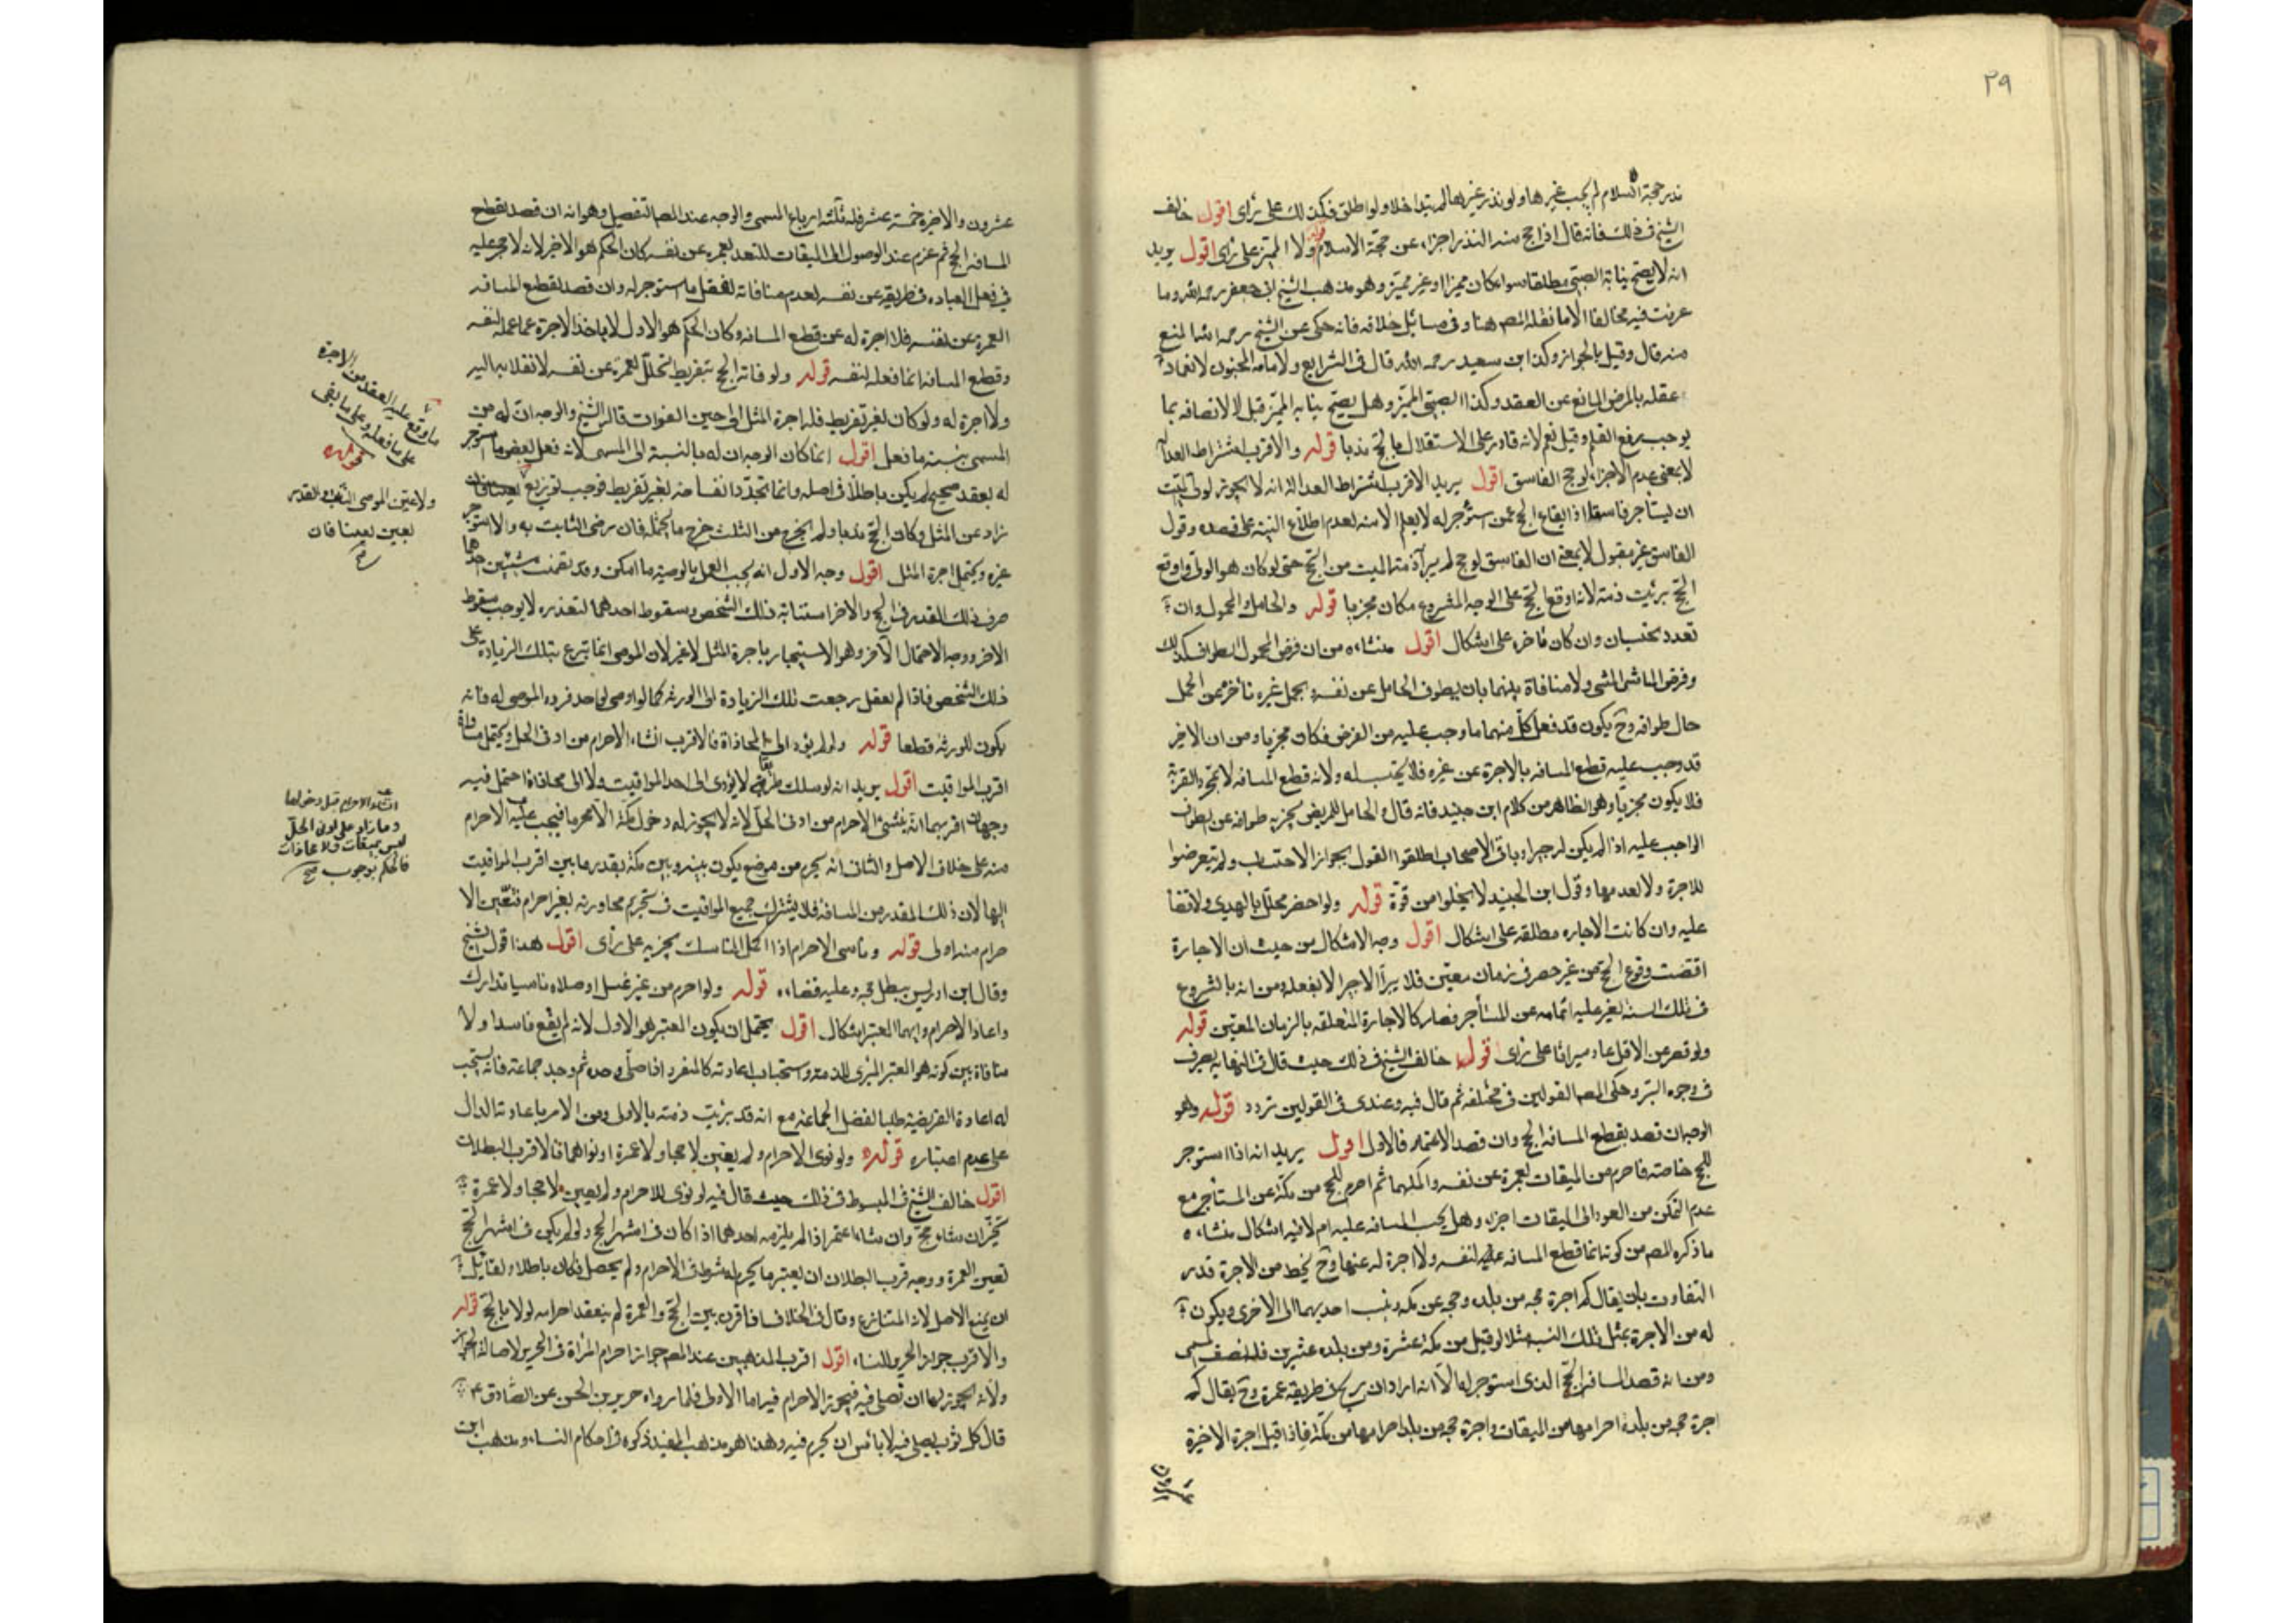 ٢٩
نذر حجة السلام لم يجب غيرها ولو نذر غيرها لم يتداخلا ولو اطلق فكذلك على رأى اقول خالف
الشيخ فى ذلك فانه قال اذا حج منه النذر اجزاء عن حجة الاسلام قوله ولا المميز على رأى اقول يريد
انه لا يصح نيابة الصبى مطلقا سواء كان مميزا او غير مميز وهو مذهب الشيخ ابى جعفر رحمه الله وما
عرفت فيه مخالفا الا ما نقله المص هنا وفى مسائل خلافه فانه حكى عن الشيخ رحمه الله المنع
منه قال وقيل بالجواز وكذا ابن سعيد رحمه الله قال فى الشرايع ولا نيابة المجنون لانغماد
عقله بالمرض المانع عن العقد وكذا الصبى المميز وهل يصح نيابه المميز قيل لا لاتصافه بما
يوجب رفع القلم وقيل نعم لانه قادر على الاستقلال بالحج ندبا قوله والاقرب اشتراط العدالة
لا بمعنى عدم الاجزاء لو حج الفاسق اقول يريد الاقرب اشتراط العدالة انه لا يجوز لولى الميت
ان يستأجر فاسقا اذ ايقاع الحج عمن استؤجر له لا يعلم الا منه لعدم اطلاع النية على قصده وقول
الفاسق غير مقبول لا بمعنى ان الفاسق لو حج لم يبرأ ذمة الميت من الحج حتى لو كان هو الولى واوقع
الحج برئت ذمته لانه اوقع الحج على الوجه المشروع مكان مجزيا قوله والحامل والمحمول وان
تعدد يحتسبان وان كان باجره على اشكال اقول منشاءه من ان فرض المحمول الطواف كذلك
وفرض الماشى المشى ولا منافاة بينهما بان يطوف الحامل عن نفسه بحمل غيره
حال طوافه وح يكون قد فعل كل منهما ما وجب عليه من الفرض فكان مجزيا ومن ان الاخير
قد وجب عليه قطع المسافه بالاجرة عن غيره فلا يحتسب له ولانه قطع المسافه لا بمجرد القربة
فلا يكون مجزيا وهو الظاهر من كلام ابن جنيد فانه قال والحامل للمريض يجزيه طوافه عن الطواف
الواجب عليه اذا لم يكن اجيرا وباقى الاصحاب اطلقوا القول بجواز الاحتساب ولم يتعرضوا
للاجرة ولا لعدمها وقول ابن الجنيد لا يخلوا من قوة قوله ولو احصر تحلل بالهدى ولا قضاء
عليه وان كانت الاجاره مطلقه على اشكال اقول وجه الاشكال من حيث ان الاجارة
اقتضت وقوع الحج من غير حصر فى زمان معين فلا يبرأ الاجير الا بفعله ومن انه بالشروع
فى تلك السنة تعين عليه اتمامه عن المستأجر فصار كالاجارة المتعلقه بالزمان المعين قوله
ولو قصر عن الاقل عاد ميراثا على رأى اقول خالف الشيخ فى ذلك حيث قال فى النهايه يصرف
فى وجوه البر وحكى المص القولين فى مختلفه ثم قال فيه وعندى فى القولين تردد قوله ولهو
الوجه ان قصد بقطع المسافه الحج وان قصد الاعتمار فالاول اقول يريد انه اذا استوجر
للحج خاصة فاحرم من الميقات بعمرة عن نفسه واكملها ثم احرم للحج من مكة عن المستأجر مع
عدم التمكن من العود الى الميقات اجزاء وهل يجب المسافه عليه ام لا فيه اشكال منشاءه
ما ذكره المص من كونه انما قطع المسافه لنفسه ولا اجرة له عنها وح يحط من الاجرة قدر
التفاوت بان يقال كم اجرة حجه من بلده وحجه عن مكه وينسب احديهما الى الاخرى ويكون
له من الاجرة بمثل تلك النسبه مثلا لو قيل من مكة عشرة ومن بلده عشرين فله نصف المسمى
ومن انه قصد المسافه الحج الذى استوجر له الا انه اراد ان يربح فى طريقه عمرة وح يقال كم
اجرة حجه من بلده احرامها من الميقات واجرة حجه من بلد احرامها من مكة فاذا قيل اجرة الاخيرة
عشرون والاخيرة خمسة عشر فله ثلثة ارباع المسمى والوجه عند المص التفصيل وهو انه ان قصد بقطع
المسافه الحج ثم عزم عند الوصول الى الميقات للتعبد بعمره عن نفسه كان الحكم هو الاخير لانه لا حجر عليه
فى فعل العباده فى طريقه عن نفسه لعدم منافاته لفعل ما استوجر له وان قصد بقطع المسافه
العمرة عن نفسه فلا اجرة له عن قطع المسافه وكان الحكم هو الاول لا ياخذ الاجرة عما عمله لنفسه
وقطع المسافه انما فعله لنفسه قوله ولو فاته الحج بتفريط تحلل بعمرة عن نفسه لانقلابه اليه
ولا اجرة له ولو كان لغير تفريط فله اجرة المثل الى حين الفوات قاله الشيخ والوجه ان له من
المسمى بنسبة ما فعل اقول انما كان الوجه ان له بالنسبة الى المسمى لانه فعل بعض ما استوجر
له بعقد صحيح لم يكن باطلا فى اصله وانما تجدد انفساخه لغير تفريط فوجب توزيع
زاد عن المثل وكان الحج ندبا ولم يخرج من الثلث خرج ما يحتمله فان رضى النائب به والا استوجر
غيره ويحتمل اجرة المثل اقول وجه الاول انه يجب العمل بالوصيه ما امكن وقد تضمنت شيئين احدهما
صرف ذلك القدر فى الحج والاخر استنابة ذلك الشخص وسقوط احدهما لتعذره لا يوجب سقوط
الاخر ووجه الاحتمال الاخر وهو الاستيجار باجرة المثل لا غير لان الموصى انما تبرع بتلك الزيادة على
ذلك الشخص فاذا لم يفعل رجعت تلك الزيادة الى الورثة كما لو اوصى لواحد فرده الموصى له فانه
يكون للورثة قطعا قوله ولو لم يؤد الى المحاذاة فالاقرب انشاء الاحرام من ادنى الحل ويحتمل مساواة
اقرب المواقيت اقول يريد انه لو سلك طريقا لا يؤدى الى احد المواقيت ولا الى محاذاة احتمل فيه
وجهان اقربهما انه ينشئ الاحرام من ادنى الحل لانه لا يجوز له دخول مكة الا محرما فيجب عليه الاحرام
منه على خلاف الاصل والثانى انه يحرم من موضع يكون بينه وبين مكة بقدر ما بين اقرب المواقيت
اليها لان ذلك المقدر من المسافة فلا يشترك جميع المواقيت فى تحريم مجاوزته بغير احرام فتعين الا
حرام منه اولى قوله وناسى الاحرام اذا اكمل المناسك يجزيه على رأى اقول هذا قول الشيخ
وقال ابن ادريس يبطل حجه وعليه قضاءه قوله ولو احرم من غير غسل او صلاه ناسيا تدارك
واعاد الاحرام وايهما المعتبر اشكال اقول يحتمل ان يكون المعتبر هو الاول لانه لم يقع فاسدا ولا
منافاة بين كونه هو المعتبر المبرى للذمة واستحباب اعادته كالمنفرد اذا صلى وحده ثم وجد جماعة فانه يستحب
له اعادة الفريضة طلبا لفضل الجماعة مع انه قد برئت ذمته بالاولى ومن الامر باعادته الدال
على عدم اعتباره قوله ولو نوى الاحرام ولم يعين لا حجا ولا عمرة او نواهما فالاقرب البطلان
اقول خالف الشيخ فى المبسوط فى ذلك حيث قال فيه لو نوى الاحرام ولم يعين لا حجا ولا عمرة
تخير ان شاء حج وان شاء اعتمر اذا لم يلزمه احدهما اذا كان فى اشهر الحج ولو لم يكن فى اشهر الحج
تعين العمرة ووجه قرب البطلان ان يعتبر ما يحرم له شرط فى الاحرام ولم يحصل فكان باطلا ولقائل
ان يمنع الاصل لانه المتنازع وقال فى الخلاف اذا قرن بين الحج والعمرة لم ينعقد احرامه الا بالحج قوله
والاقرب جواز الحرير للنساء اقول اقرب المذهبين عند المص جواز احرام المرأة فى الحرير لاصالة الجواز
ولانه يجوز لها ان تصلى فيه فيجوز الاحرام فيه اما الاولى فلما رواه حريز بن الحسن عن الصادق ع
قال كل ثوب يصلى فيه لا باس ان يحرم فيه وهذا هو مذهب المفيد ذكره فى احكام النساء ومذهب ابن
ما وقع عليه العقد من الاجرة
على ما فعله وعلى ما بقى
قوله
ولو عين الموصى النائب والقدر
انشاء الاحرام قبل دخولها
وما زاد على ادنى الحل
ليس بميقات ولا محاذات
فالحكم بوجوب صح